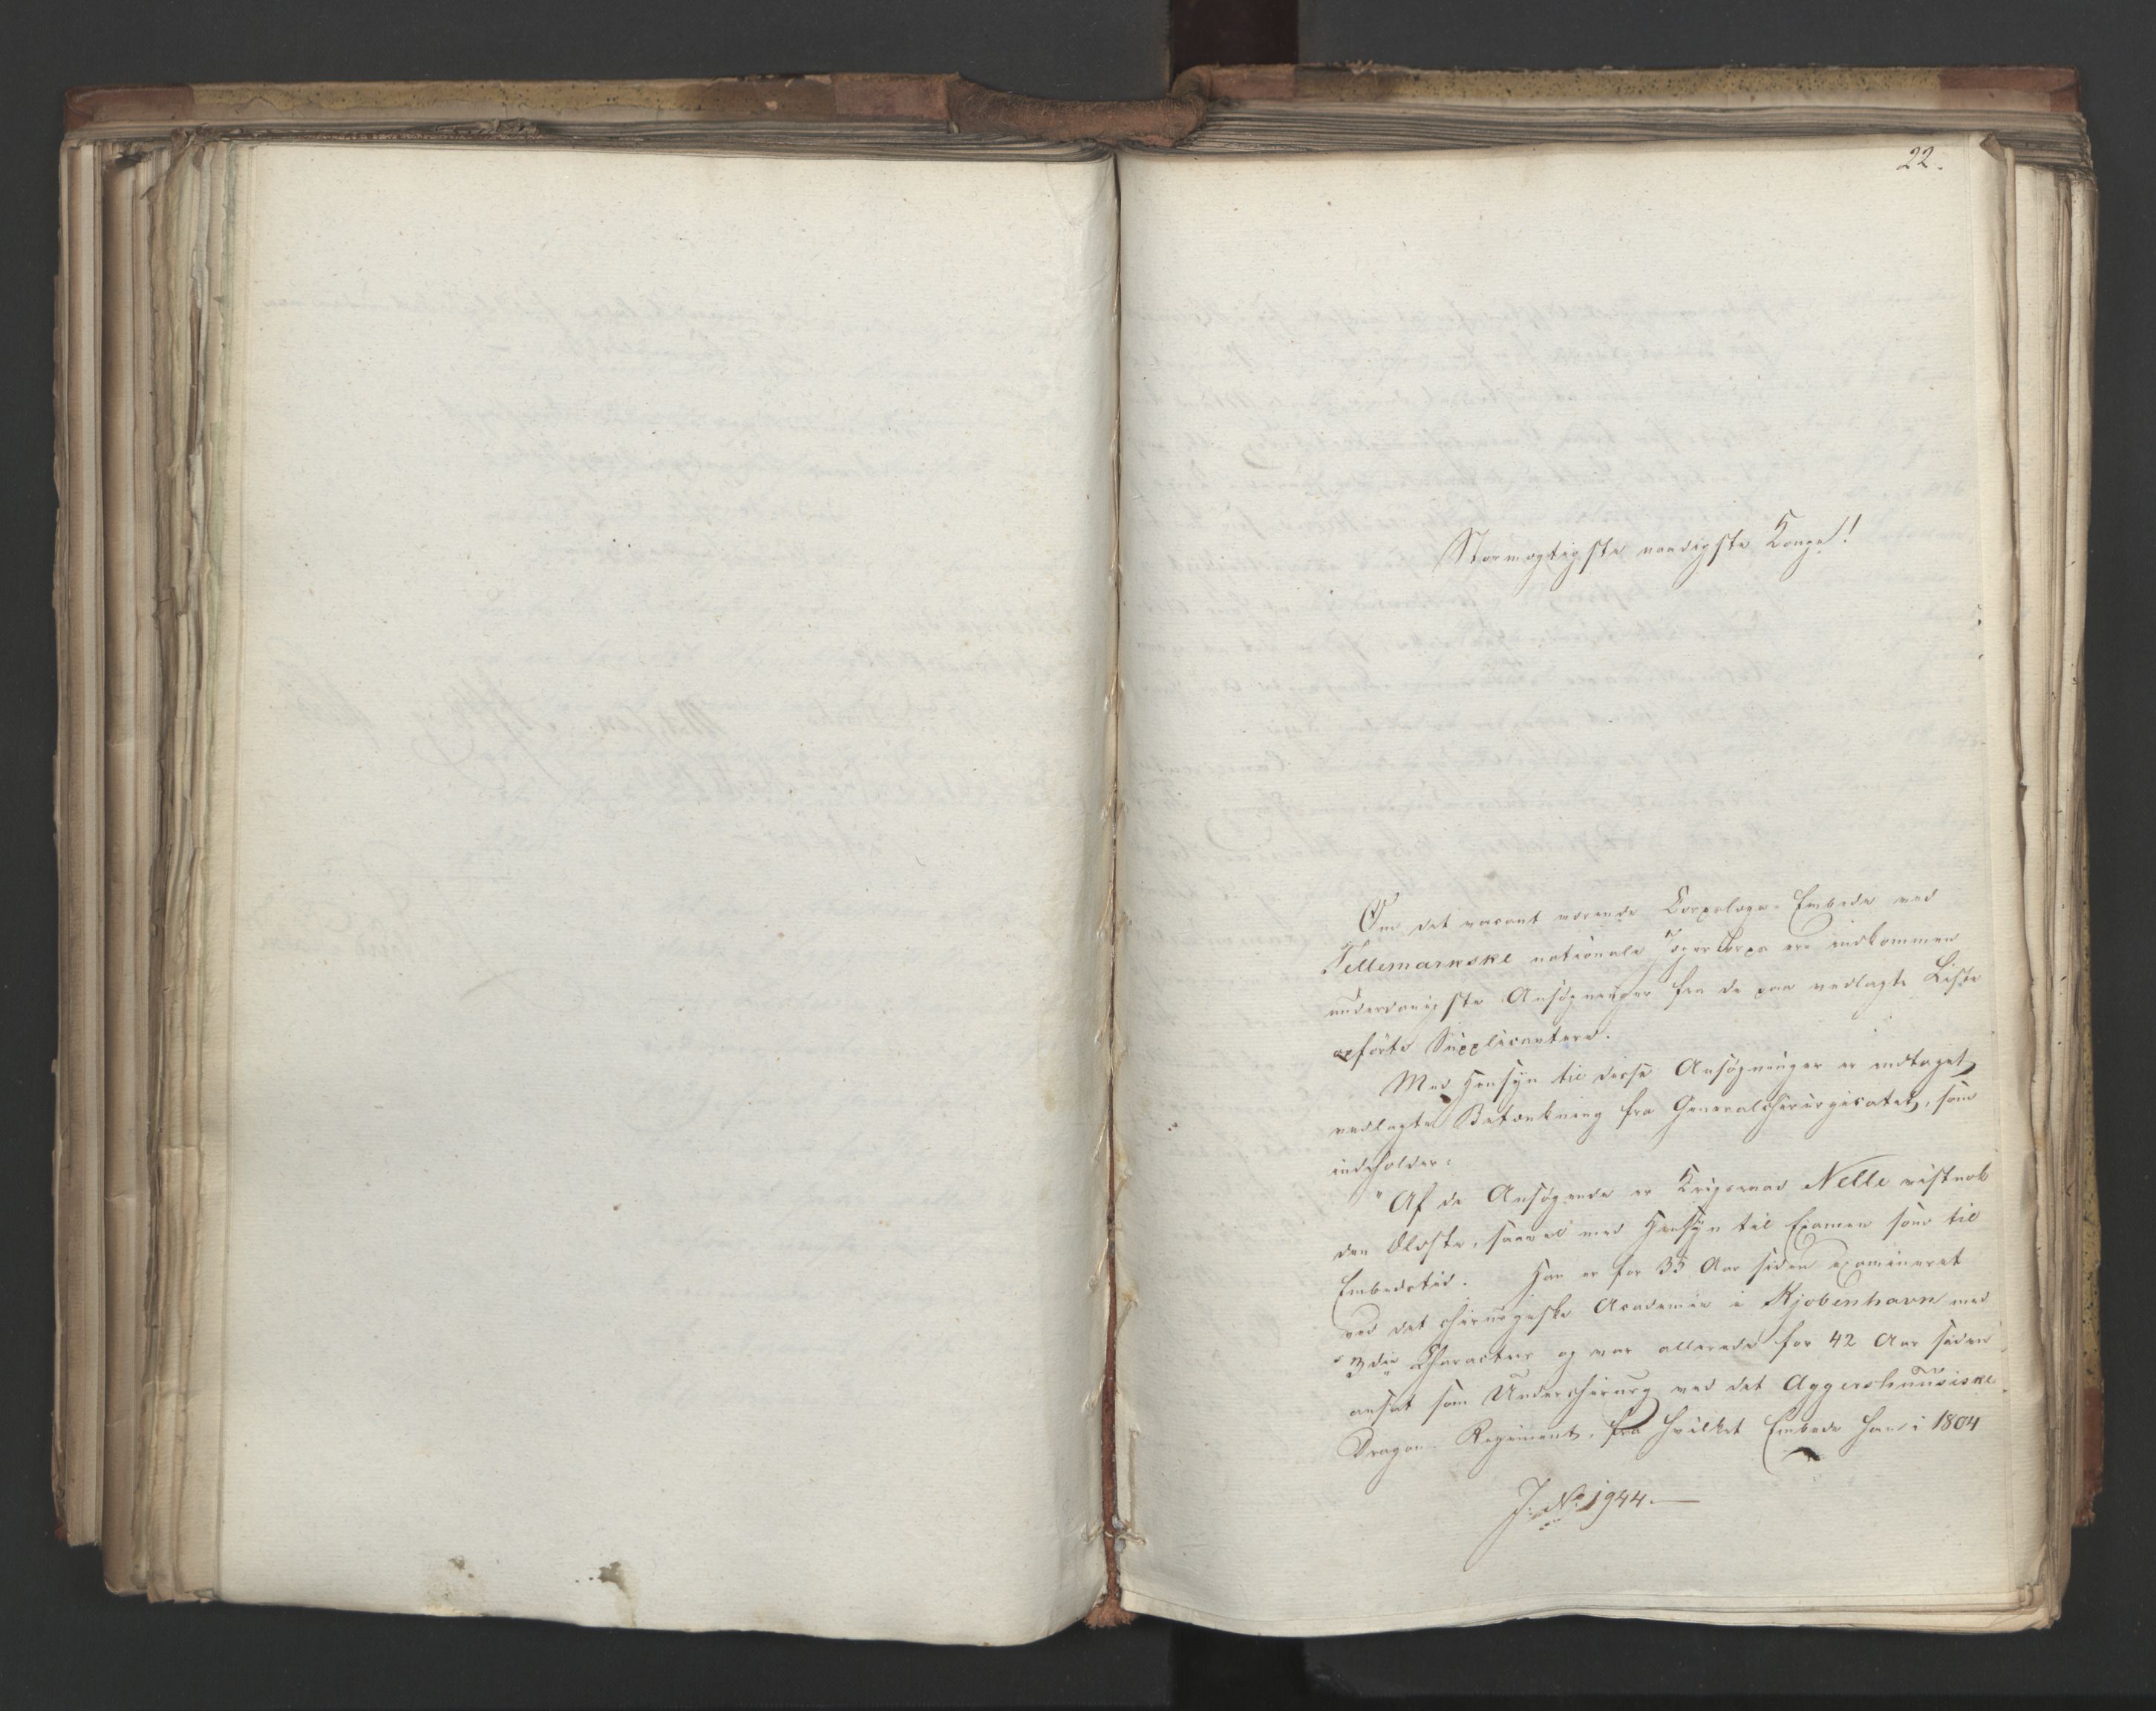 22.
Stormægtigste naadigste Konge!
Om det vacant værende Corpslæge-Embede ved
Tellemarkske nationale Jægercorps ere indkommen
underdanigste Ansøgninger fra de paa vedlagte Liste
opförte Supplicantere.
Med Hensyn til disse Ansøgninger er indtaget
vedlagte Betænkning fra Generalchirurgicatet, som
indeholder:
"Af de Ansøgende er Krigsraad Nelle vistnok
den Ældste, saavel med Hensyn til Examen som til
Embedstid. Han er for 33 Aar siden examineret
ved det chirurgiske Academie i Kjøbenhavn med
3die Character og var allerede for 42 Aar siden
ansat som Underchirurg ved det Aggershuusiske
Dragon-Regiment, fra hvilket Embede han i 1804
J. No 1944.